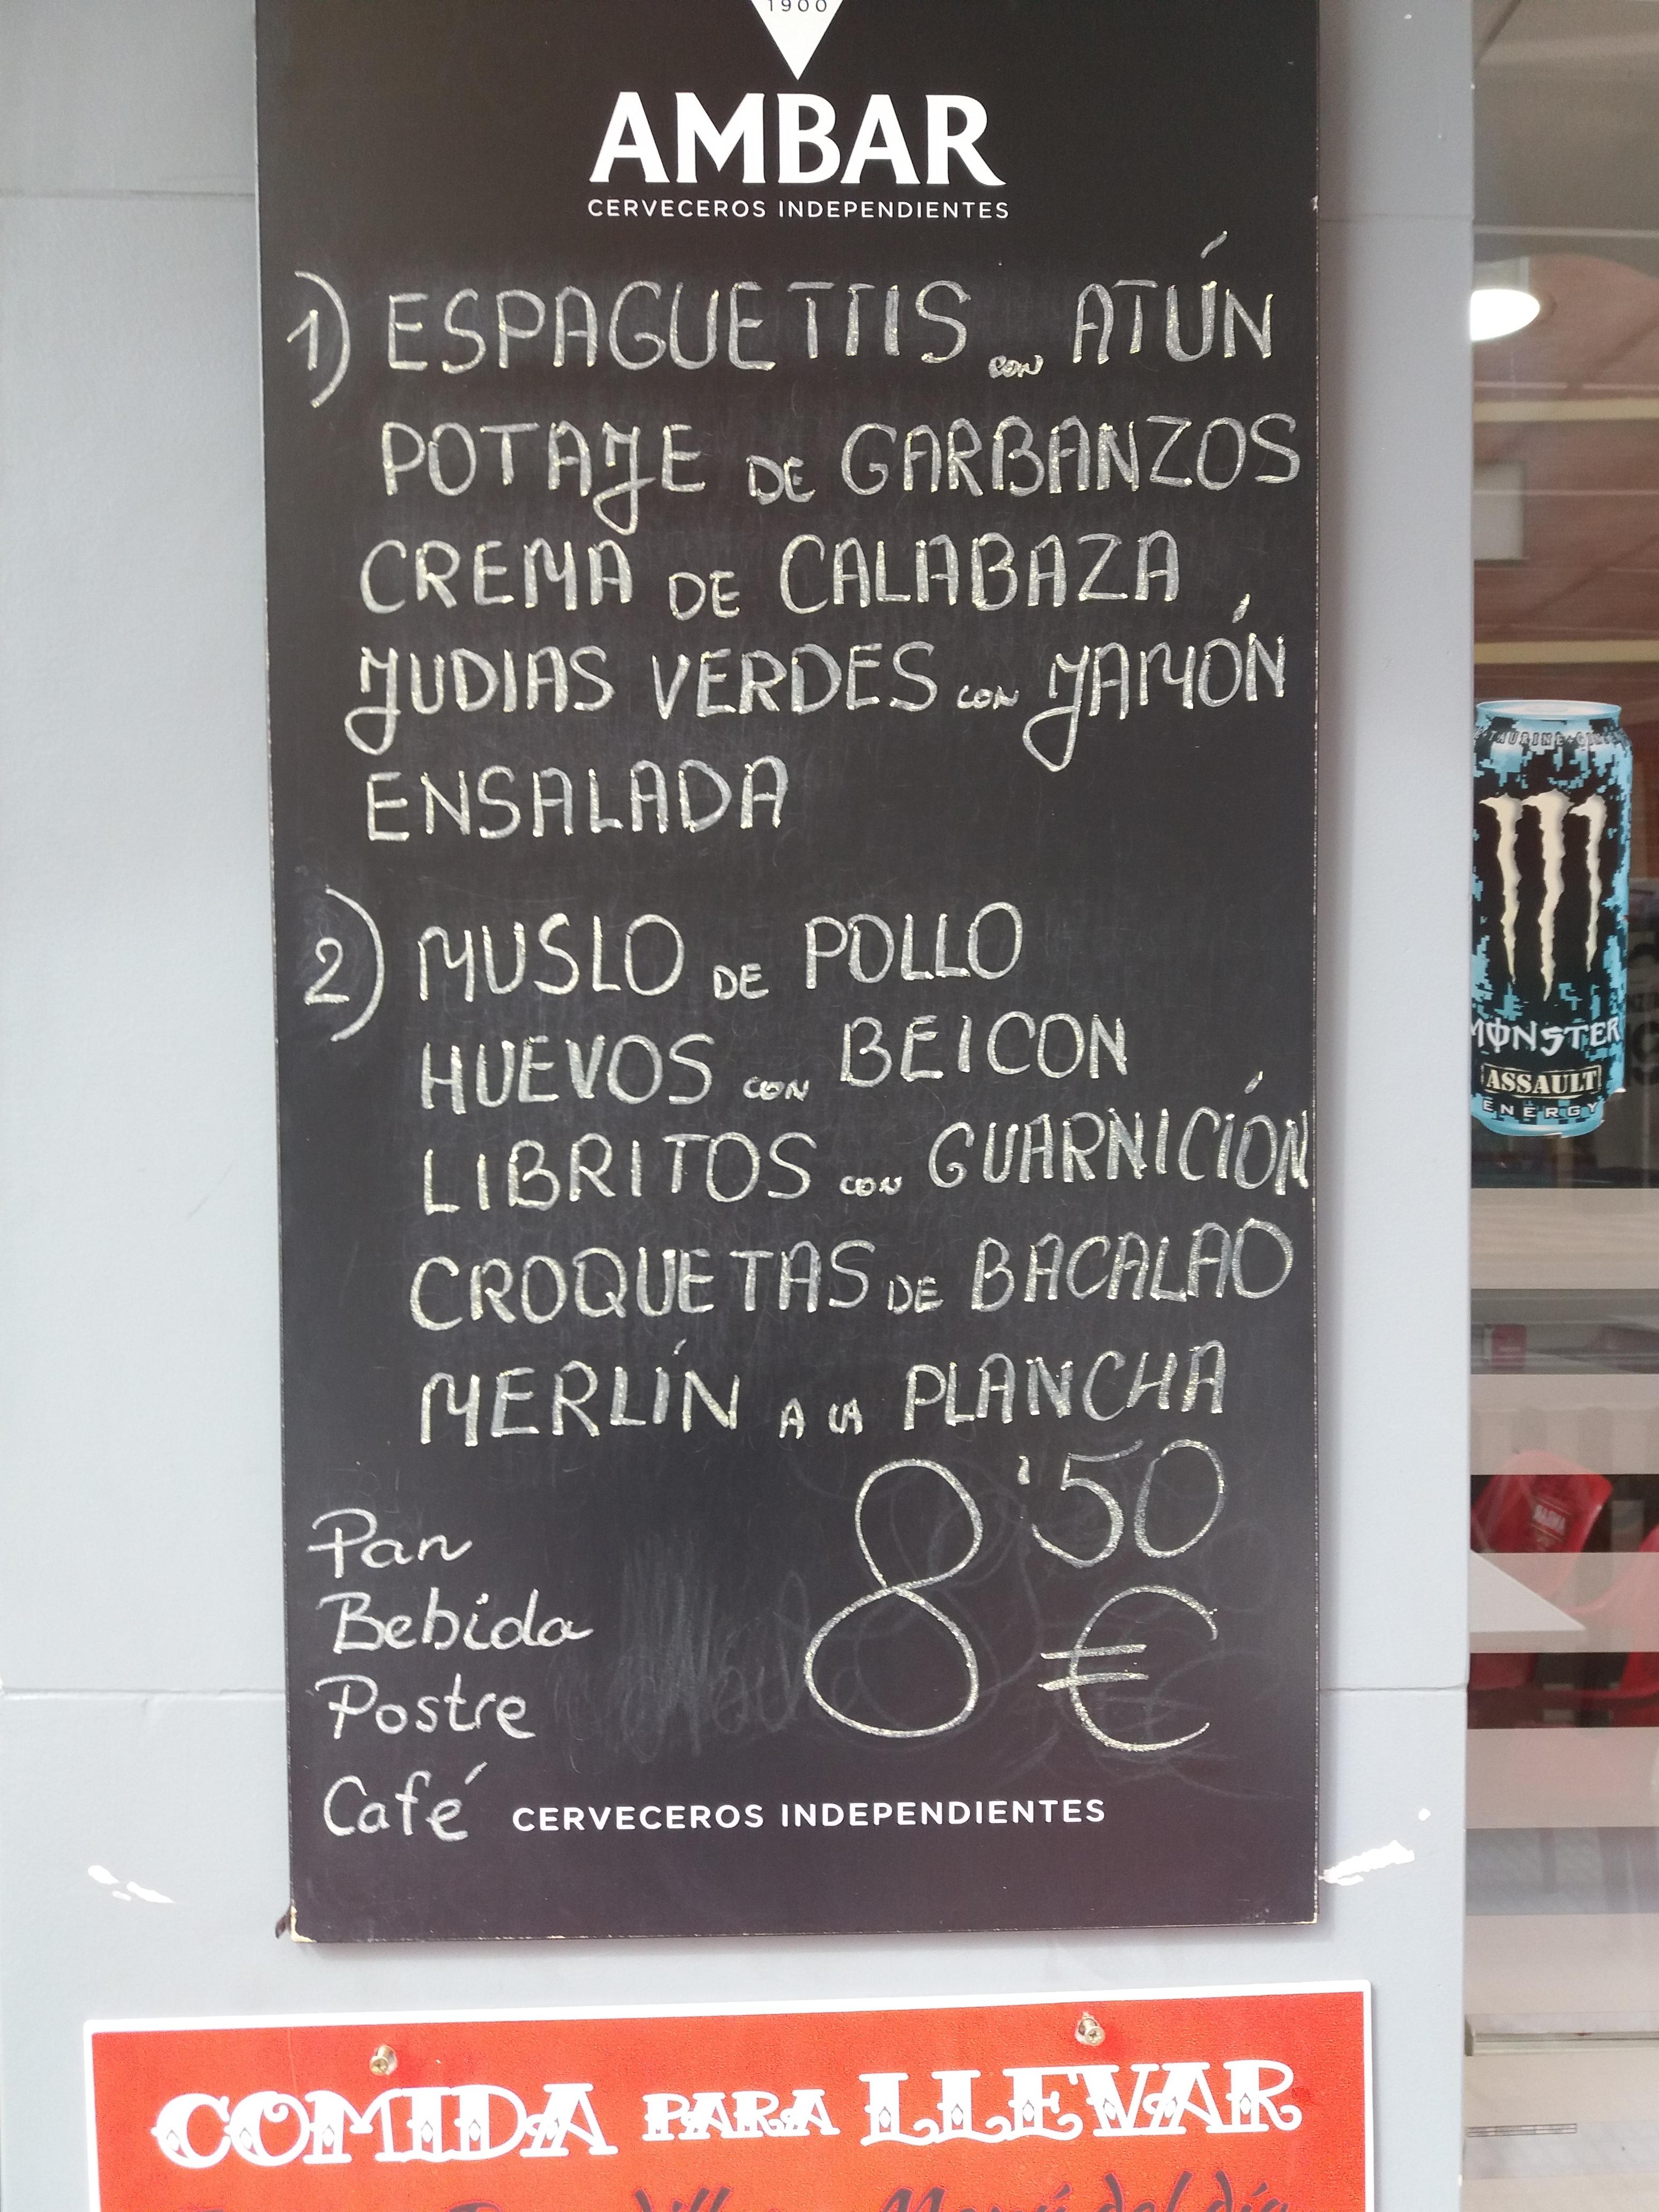 1900
AMBAR
CERVECEROS INDEPENDIENTES
1) ESPAGUETTIS con ATÚN
POTAJE DE GARBANZOS
CREMA DE CALABAZA
JUDIAS VERDES CON JAMÓN
ENSALADA
2) MUSLO DE POLLO
HUEVOS CON BEICON
LIBRITOS CON GUARNICIÓN
CROQUETAS DE BACALAO
MERLÍN A LA PLANCHA
8'50
€
Pan
Bebida
Postre
Café
CERVECEROS INDEPENDIENTES
COMIDA PARA LLEVAR
Menú del día
TAURINE
MONSTER
ASSAULT
ENERGY